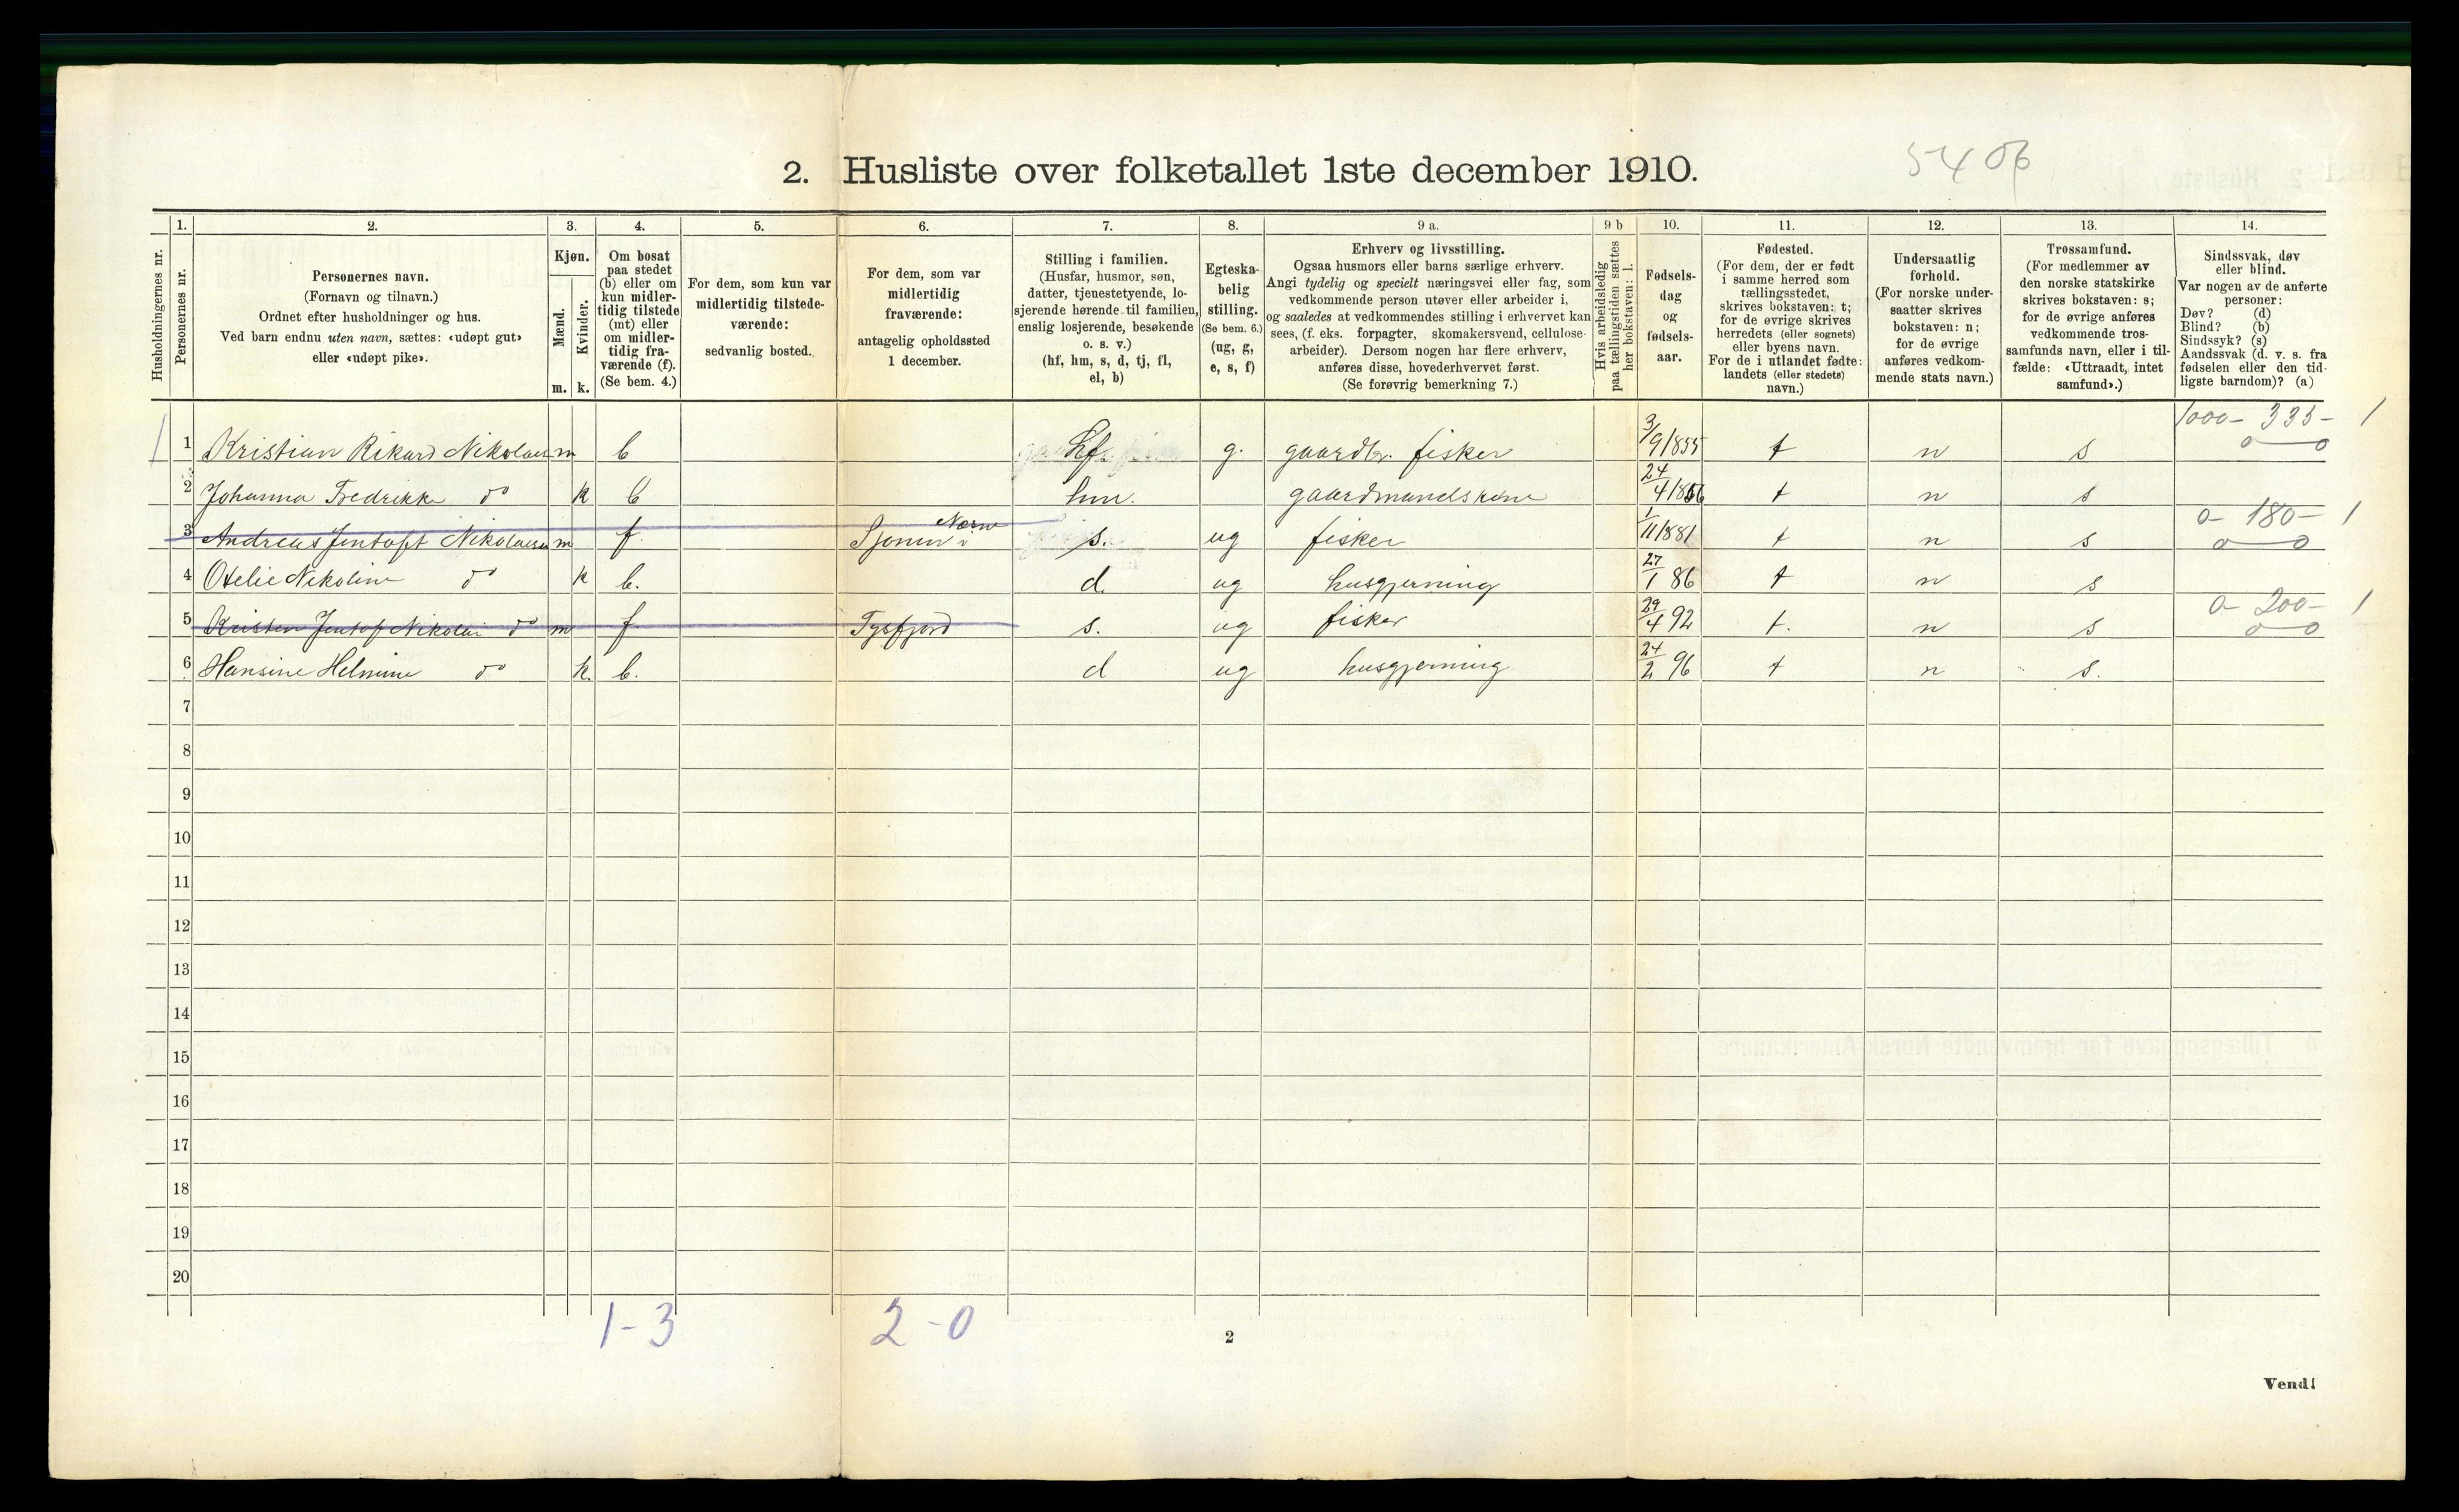 2. Husliste over folketallet 1ste december 1910.
5406
Husholdningernes nr.
1. Personernes nr.
2. Personernes navn. (Fornavn og tilnavn.) Ordnet efter husholdninger og hus. Ved barn endnu uten navn, sættes: «udøpt gut» eller «udøpt pike».
3. Kjøn. Mænd. m. Kvinder. k.
4. Om bosat paa stedet (b) eller om kun midlertidig tilstede (mt) eller om midlertidig fraværende (f). (Se bem. 4.)
5. For dem, som kun var midlertidig tilstedeværende: sedvanlig bosted.
6. For dem, som var midlertidig fraværende: antagelig opholdssted 1 december.
7. Stilling i familien. (Husfar, husmor, søn, datter, tjenestetyende, losjerende hørende til familien, enslig losjerende, besøkende o. s. v.) (hf, hm, s, d, tj, fl, el, b)
8. Egteskabelig stilling. (Se bem. 6.) (ug, g, e, s, f)
9 a. Erhverv og livsstilling. Ogsaa husmors eller barns særlige erhverv. Angi tydelig og specielt næringsvei eller fag, som vedkommende person utøver eller arbeider i, og saaledes at vedkommendes stilling i erhvervet kan sees, (f. eks. forpagter, skomakersvend, cellulosearbeider). Dersom nogen har flere erhverv, anføres disse, hovederhvervet først. (Se forøvrig bemerkning 7.)
9 b Hvis arbeidsledig paa tællingstiden sættes her bokstaven: l.
10. Fødselsdag og fødselsaar.
11. Fødested. (For dem, der er født i samme herred som tællingsstedet, skrives bokstaven: t; for de øvrige skrives herredets (eller sognets) eller byens navn. For de i utlandet fødte: landets (eller stedets) navn.)
12. Undersaatlig forhold. (For norske undersaatter skrives bokstaven: n; for de øvrige anføres vedkommende stats navn.)
13. Trossamfund. (For medlemmer av den norske statskirke skrives bokstaven: s; for de øvrige anføres vedkommende trossamfunds navn, eller i tilfælde: «Uttraadt, intet samfund».)
14. Sindssvak, døv eller blind. Var nogen av de anførte personer: Døv? (d) Blind? (b) Sindssyk? (s) Aandssvak (d. v. s. fra fødselen eller den tidligste barndom)? (a)
1000 - 335 - 1
1 1 Kristian Rikard Nikolaisen m b hf. g. gaardbr. fisker 3/9 1855 t n s 0 — 0
2 Johanna Fredrikke do k b hm. gaardmandskone 24/4 1856 t n s
0 - 180 - 1
3 Andreas Jentoft Nikolaisen m f Sjonen i Næsne s. ug fisker 1/11 1881 t n s 0 — 0
4 Otelie Nikoline do k b. d. ug husgjerning 27/1 86 t n s
0 - 200 - 1
5 Kristen Jentof Nikolai do m f Tysfjord s. ug fisker 29/4 92 t. n s 0 — 0
6 Hansine Helmine do k. b. d ug husgjerning 24/2 96 t n s.
7
8
9
10
11
12
13
14
15
16
17
18
19
20
1 - 3 2 - 0
2
Vend!